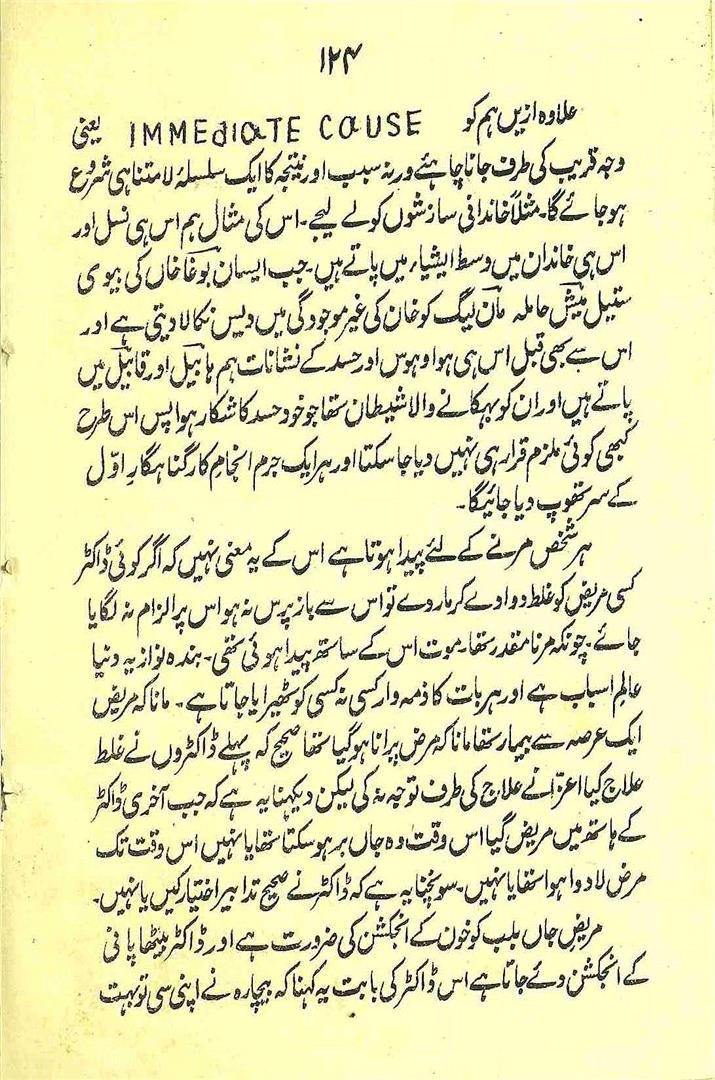 ۱۲۴
علاوہ ازیں ہم کو IMMEdiaTE CaUSE یعنی
وجہ قریب کی طرف جانا چاہئے ورنہ سبب اور نتیجہ کا ایک سلسلۂ لامتناہی شروع
ہو جائے گا۔ مثلاً خاندانی سازشوں کو لے لیجے۔ اس کی مثال ہم اس ہی نسل اور
اس ہی خاندان میں وسط ایشیاء میں پاتے ہیں۔ جب ایسان بوغا خاں کی بیوی
ستیل میش حاملہ مان لیگ کو خان کی غیر موجودگی میں دیس نکالا دیتی ہے اور
اس سے بھی قبل اس ہی ہوا و ہوس اور حسد کے نشانات ہم ہابیل اور قابیل میں
پاتے ہیں اور ان کو بہکانے والا شیطان تھا جو خود حسد کا شکار ہوا پس اس طرح
کبھی کوئی ملزم قرار ہی نہیں دیا جا سکتا اور ہر ایک جرم انجام کار گناہگارِ اوّل
کے سر تھوپ دیا جائیگا۔
ہر شخص مرنے کے لئے پیدا ہوتا ہے اس کے یہ معنی نہیں کہ اگر کوئی ڈاکٹر
کسی مریض کو غلط دوا دے کر مار دے تو اس سے باز پرس نہ ہو اس پر الزام نہ لگایا
جائے۔ چونکہ مرنا مقدر تھا۔ موت اس کے ساتھ پیدا ہوئی تھی۔ بندہ نواز یہ دنیا
عالمِ اسباب ہے اور ہر بات کا ذمہ وار کسی نہ کسی کو ٹھیرایا جاتا ہے۔ مانا کہ مریض
ایک عرصہ سے بیمار تھا مانا کہ مرض پرانا ہو گیا تھا صحیح کہ پہلے ڈاکٹروں نے غلط
علاج کیا اعزا نے علاج کی طرف توجہ نہ کی لیکن دیکھنا یہ ہے کہ جب آخری ڈاکٹر
کے ہاتھ میں مریض گیا اس وقت وہ جاں بر ہو سکتا تھا یا نہیں اس وقت تک
مرض لادوا ہوا تھا یا نہیں۔ سوچنا یہ ہے کہ ڈاکٹر نے صحیح تدابیر اختیار کیں یا نہیں۔
مریضِ جاں بلب کو خون کے انجکشن کی ضرورت ہے اور ڈاکٹر بیٹھا پانی
کے انجکشن دئے جاتا ہے اس ڈاکٹر کی بابت یہ کہنا کہ بیچارہ نے اپنی سی تو بہت